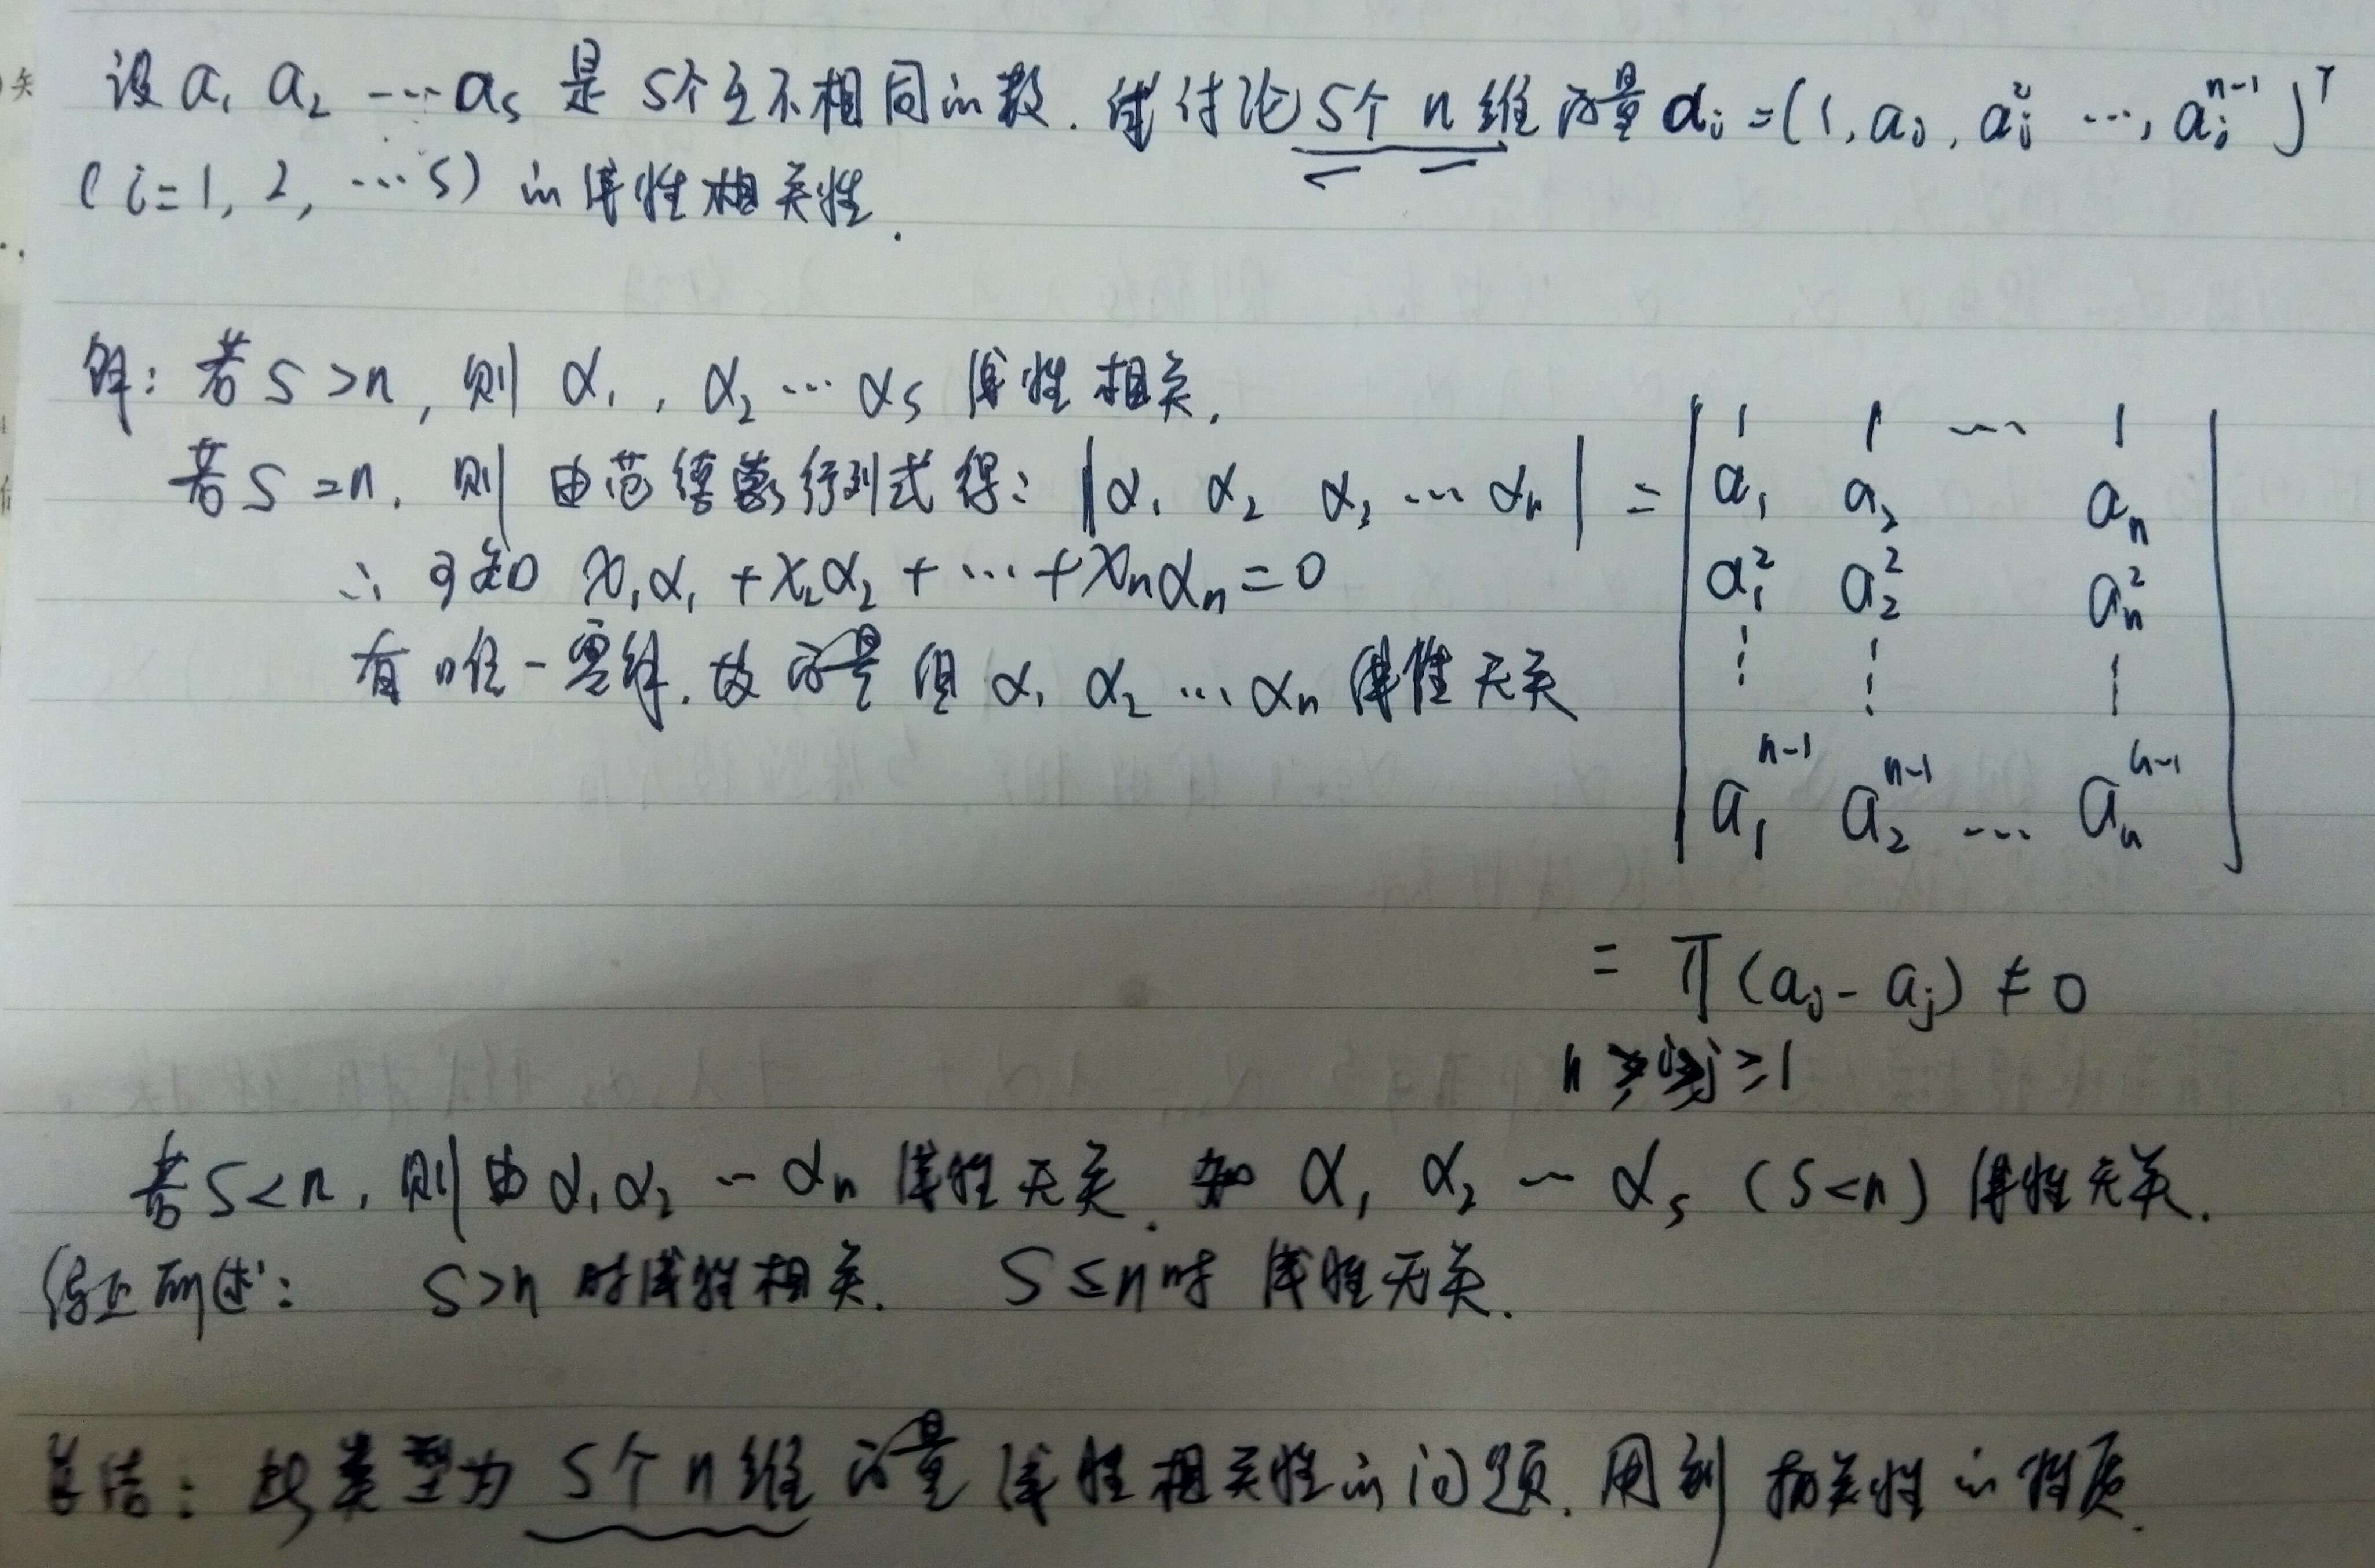 设 a₁ a₂ ⋯ aₛ 是 s个互不相同的数. 试讨论 s个 n 维向量 αᵢ = (1, aᵢ, aᵢ² ⋯, aᵢⁿ⁻¹)ᵀ
(i=1, 2, ⋯ s) 的线性相关性.
解: 若 s > n, 则 α₁, α₂ ⋯ αₛ 线性相关.
若 s = n, 则 由范德蒙行列式得: | α₁ α₂ α₃ ⋯ αₙ | =
| 1 1 ⋯ 1 |
| a₁ a₂ aₙ |
| a₁² a₂² aₙ² |
| ⋮ ⋮ ⋮ |
| a₁ⁿ⁻¹ a₂ⁿ⁻¹ ⋯ aₙⁿ⁻¹ |
∴ 可知 x₁α₁ + x₂α₂ + ⋯ + xₙαₙ = 0
有唯一零解. 故向量组 α₁ α₂ ⋯ αₙ 线性无关
= ∏ (aᵢ - aⱼ) ≠ 0
n ≥ i > j ≥ 1
若 s < n, 则由 α₁ α₂ ⋯ αₙ 线性无关. 知 α₁ α₂ ⋯ αₛ (s < n) 线性无关.
综上所述: s > n 时线性相关. s ≤ n 时 线性无关.
总结: 此类型为 s个 n 维 向量 线性相关性的问题. 用到 相关性的性质.